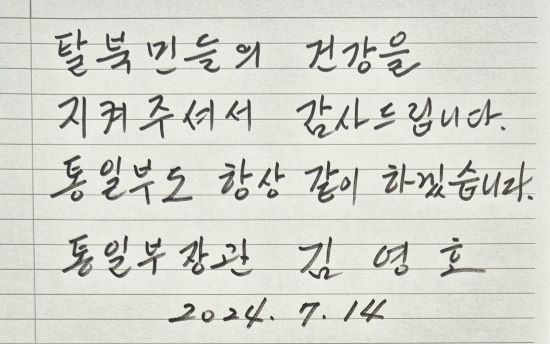 탈북민들의 건강을
지켜주셔서 감사드립니다.
통일부도 항상 같이 하겠습니다.
통일부장관 김 영 호
2024. 7. 14